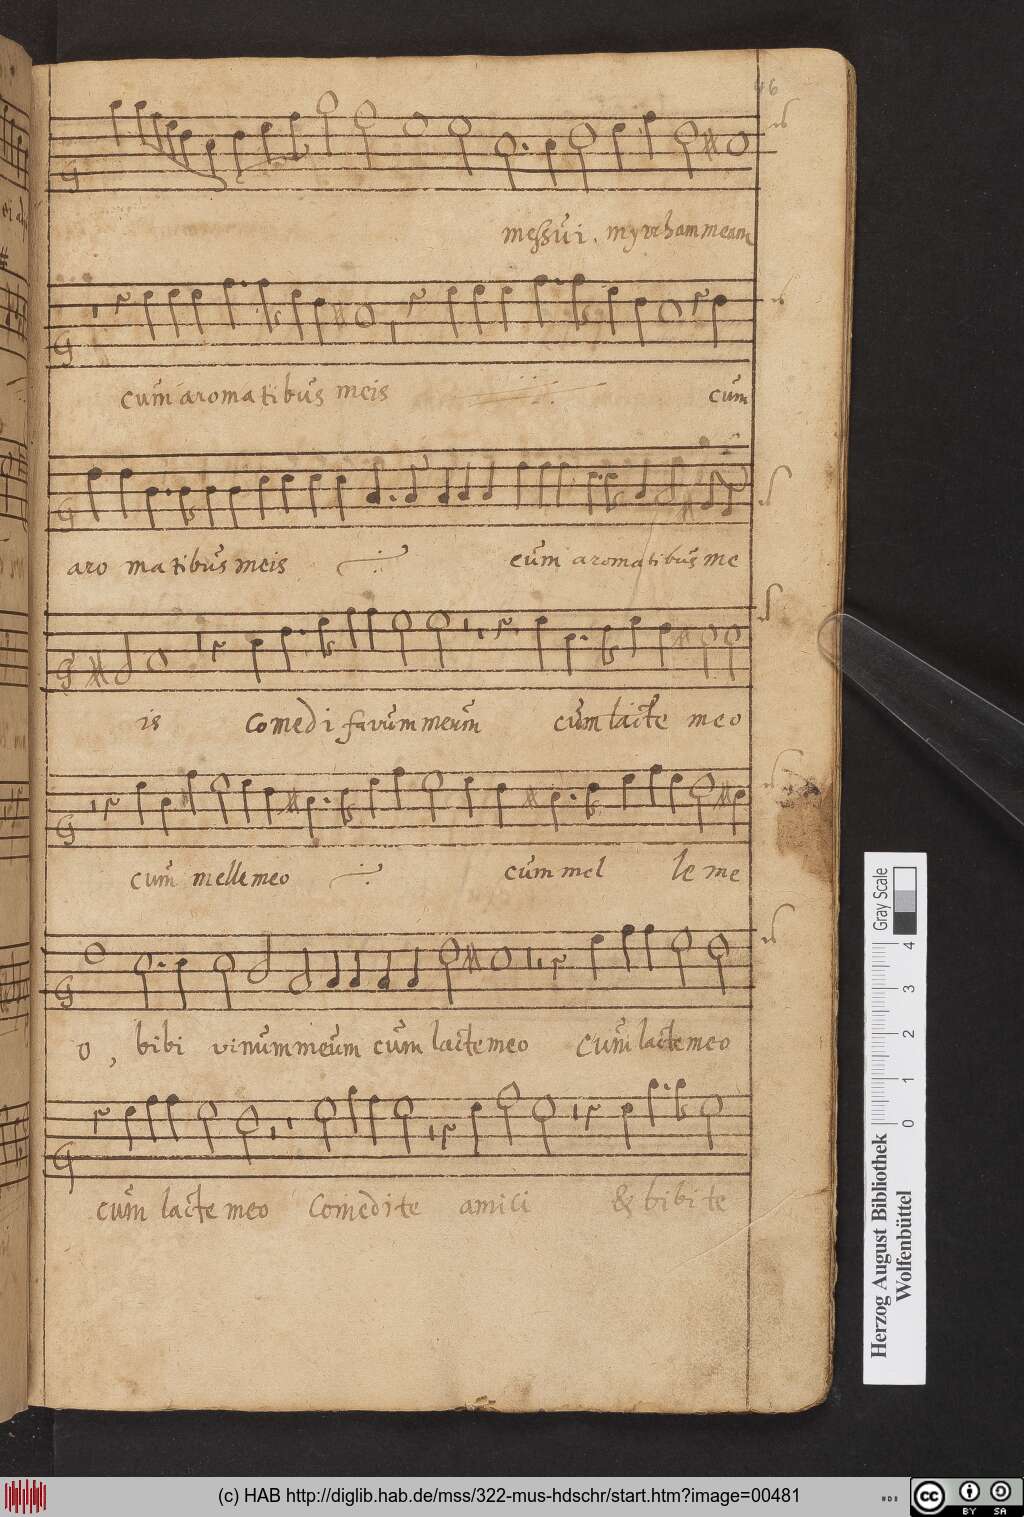 46
messūi. myrrham meam
cūm aromatibūs meis
cūm
aro matibūs meis
cūm aromatibūs me
is Comedi favūm meūm cūm lacte meo
cūm melle meo
cūm mel le me
o, bibi vinūm meūm cūm lacte meo Cūm lacte meo
cūm lacte meo Comedite amici & bibite
Gray Scale
0 1 2 3 4
Herzog August Bibliothek
Wolfenbüttel
(c) HAB http://diglib.hab.de/mss/322-mus-hdschr/start.htm?image=00481
cc
BY SA